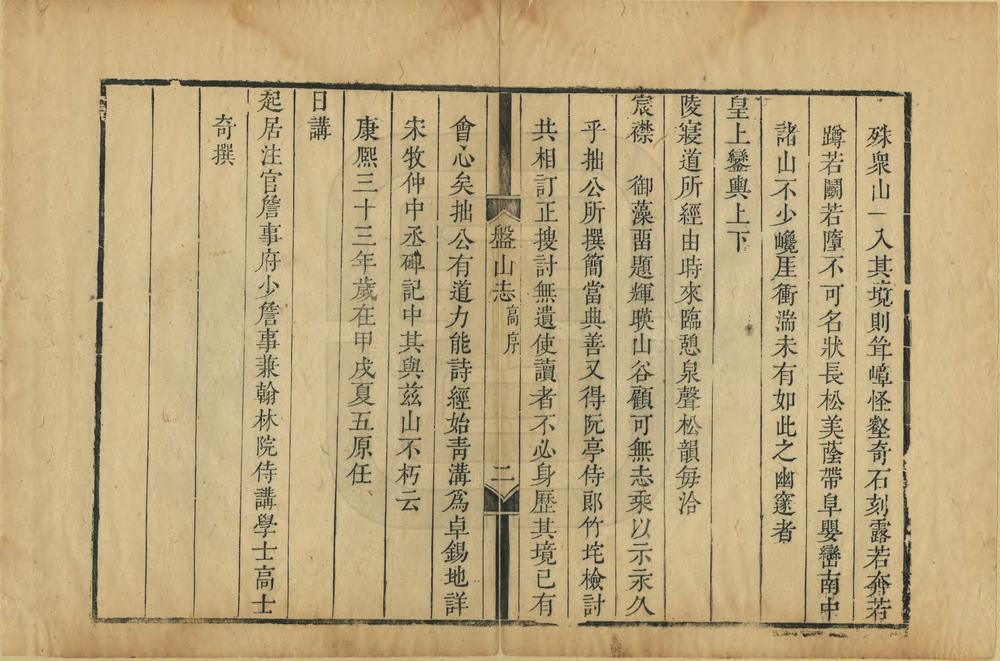 殊衆山一入其境則聳嶂怪壑奇石刻露若奔若
蹲若鬬若墮不可名狀長松美蔭帶阜嬰巒南中
諸山不少巉厓衝湍未有如此之幽邃者
皇上鑾輿上下
陵寢道所經由時來臨憩泉聲松韻每洽
宸襟 御藻畱題輝暎山谷顧可無志乘以示永久
乎拙公所撰簡當典善又得阮亭侍郎竹垞檢討
共相訂正搜討無遺使讀者不必身歷其境已有
盤山志 高序 二
會心矣拙公有道力能詩經始靑溝爲卓錫地詳
宋牧仲中丞碑記中其與茲山不朽云
康熙三十三年歲在甲戌夏五原任
日講
起居注官詹事府少詹事兼翰林院侍講學士高士
奇撰